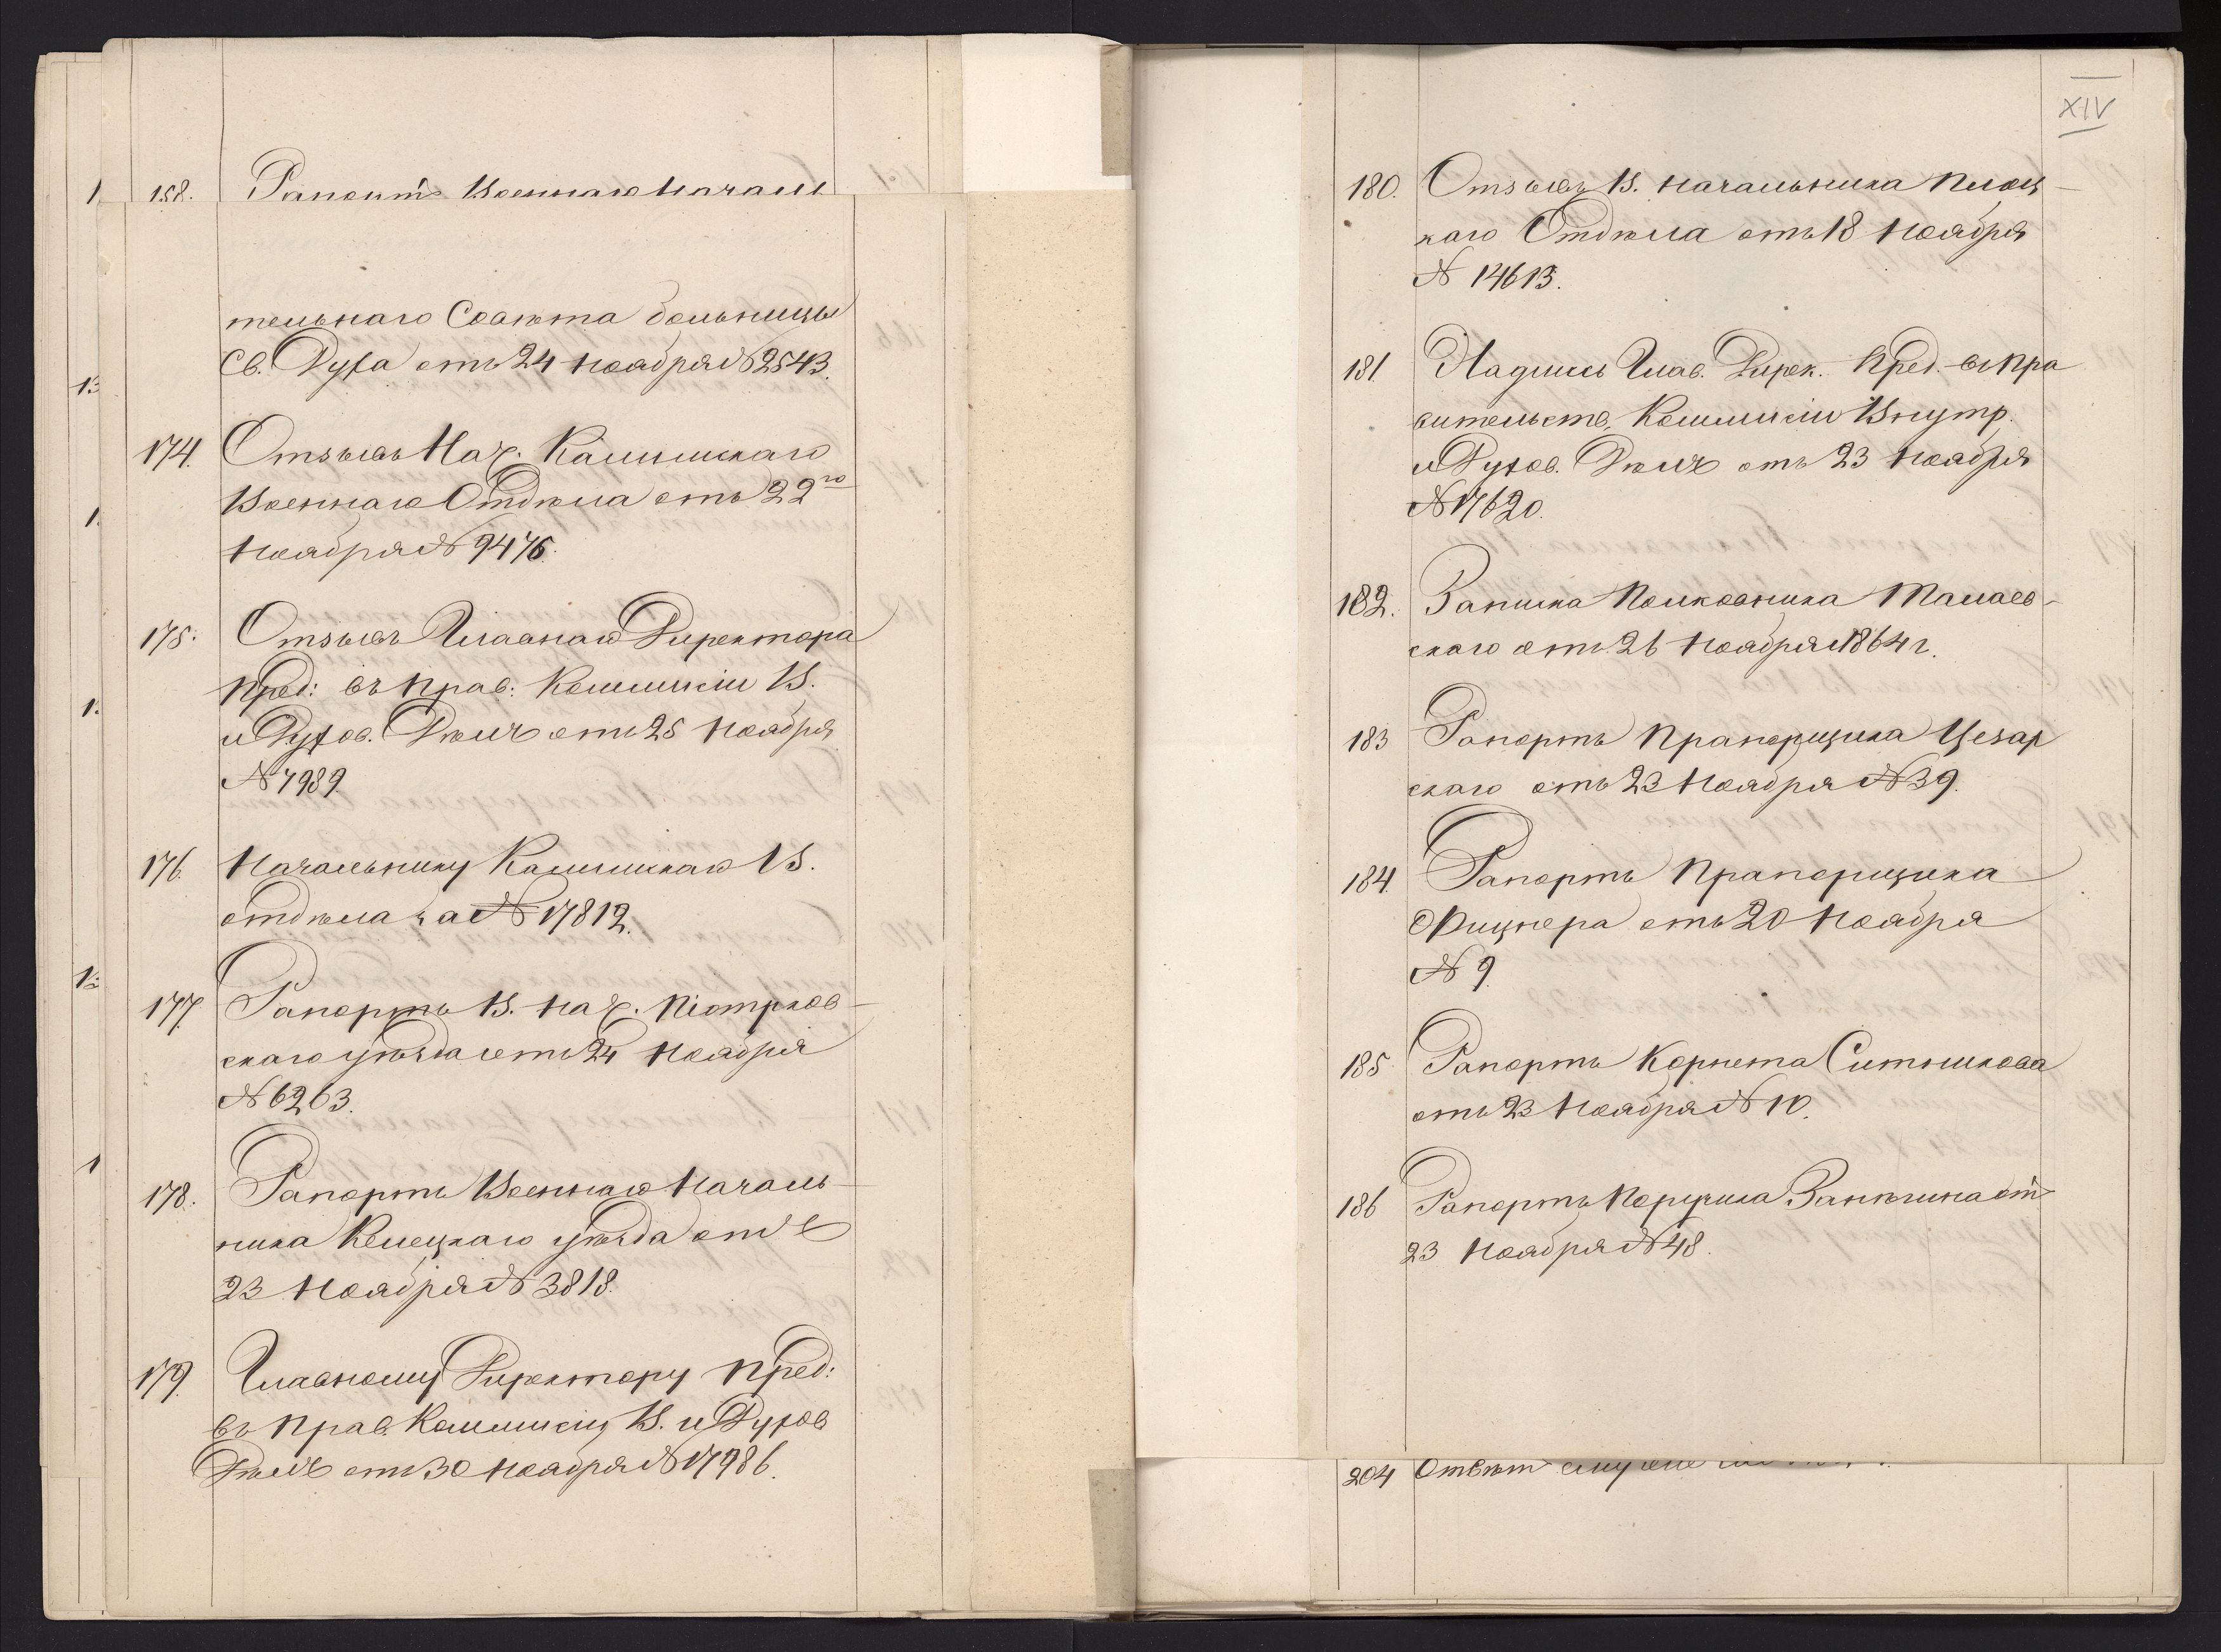 158. Рапортъ Военнаго Началь
тельнаго Совѣта больницы
Св. Духа отъ 24 Ноября № 2543.
174. Отзывъ Нач. Калишскаго
Военнаго Отдѣла отъ 22го
Ноября № 9476.
175. Отзывъ Главнаго Директора
Пред: въ Прав: Коммисіи В.
и Духов. Дѣлъ отъ 25 Ноября
№ 7989.
176. Начальнику Калишскаго В.
отдѣла за № 17812.
177. Рапортъ В. Нач. Піотрков-
скаго уѣзда отъ 24 Ноября
№ 6263.
178. Рапортъ Военнаго Началь-
ника Келецкаго уѣзда отъ
23 Ноября № 3818.
179. Главному Директору Пред:
въ Прав. Коммисіи В. и Духов
Дѣлъ отъ 30 Ноября № 17986.
XIV
180. Отзывъ В. Начальника Плоц-
каго Отдѣла отъ 18 Ноября
№ 14613.
181. Надпись Глав. Дирек. Пред. въ Пра
вительств. Коммисіи Внутр.
и Духов. Дѣлъ отъ 23 Ноября
№ 17620.
182. Записка Полковника
скаго отъ 26 Ноября 1864 г.
183 Рапортъ Прапорщика Цезар
скаго отъ 23 Ноября № 39.
184. Рапортъ Прапорщика
Фицнера отъ 20 Ноября
№ 9.
185 Рапортъ Корнета Ситникова
отъ 23 Ноября № 10.
186 Рапортъ Поручика отъ
23 Ноября № 48.
204 Отвѣтъ